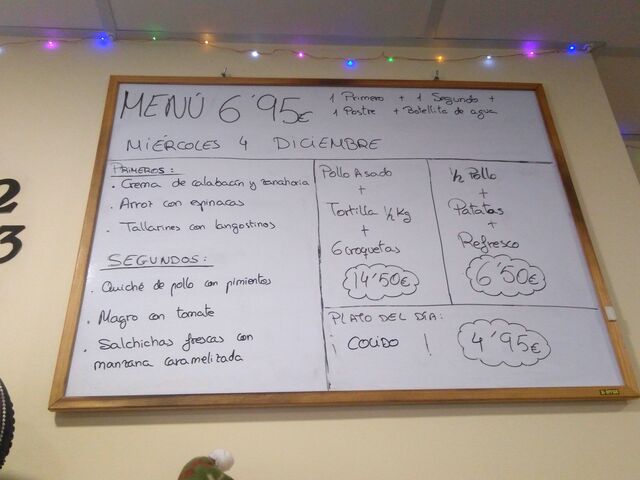 MENÚ 6'95€
1 Primero + 1 Segundo +
1 Postre + Botellita de agua
MIÉRCOLES 4 DICIEMBRE
PRIMEROS:
. Crema de calabacín y zanahoria
. Arroz con espinacas
. Tallarines con langostinos
SEGUNDOS:
. Quiché de pollo con pimientos
. Magro con tomate
. Salchichas frescas con
manzana caramelizada
Pollo Asado
+
Tortilla 1/2 Kg
+
6 croquetas
14'50€
1/2 Pollo
+
Patatas
+
Refresco
6'50€
PLATO DEL DÍA:
¡ COCIDO !
4'95€
2
3